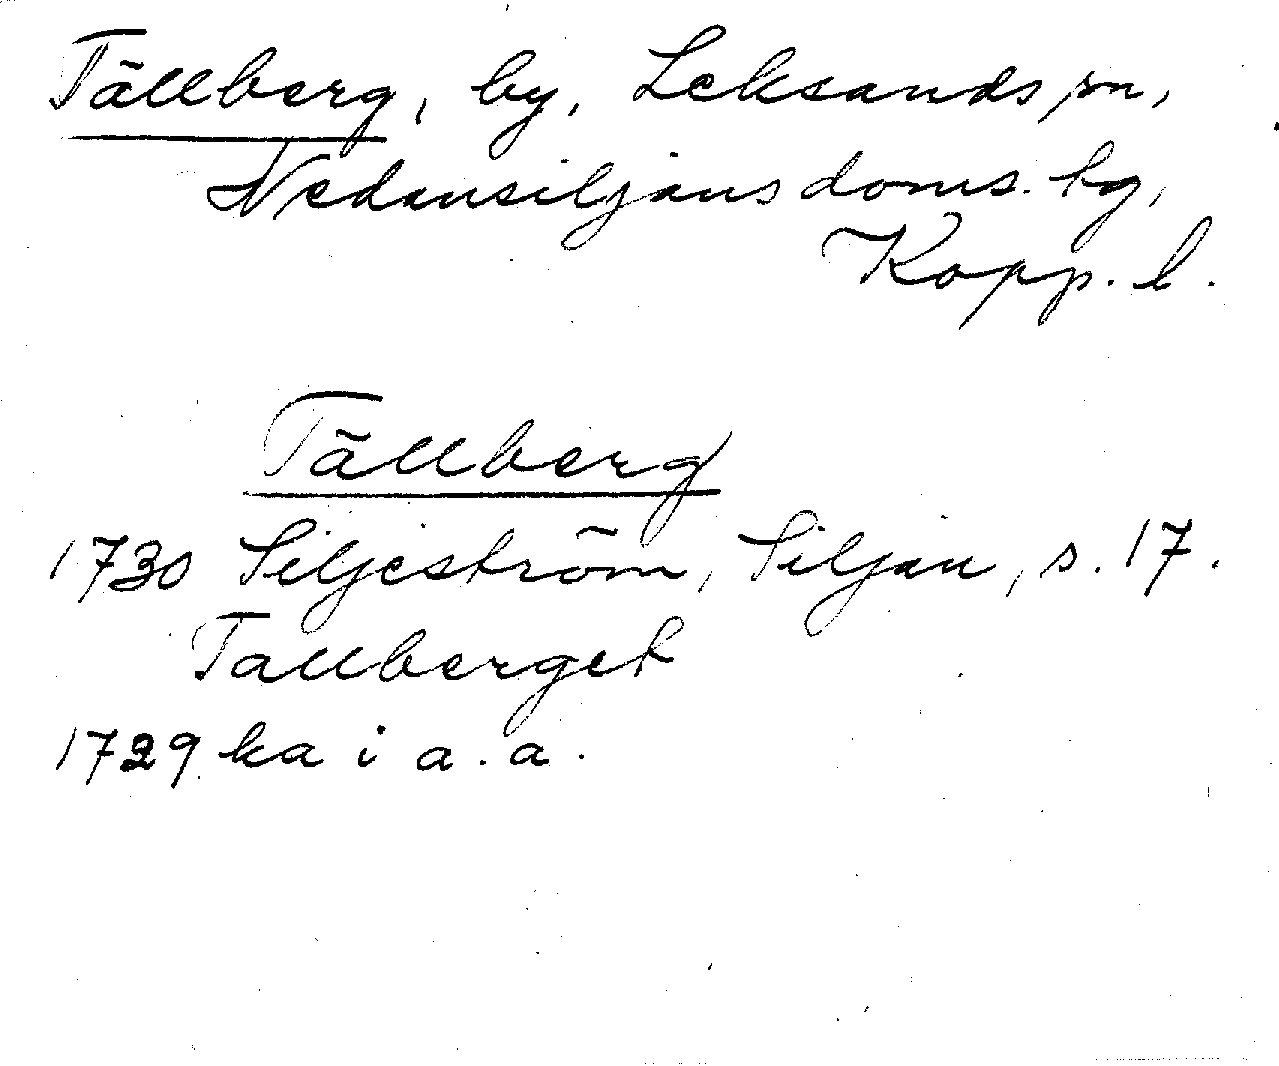 Tällberg, by, Leksands sn,
Nedansiljans doms. tg,
Kopp. l.
Tällberg
1730 Siljeström, Siljan, s. 17.
Tallberget
1729 ka i a. a.